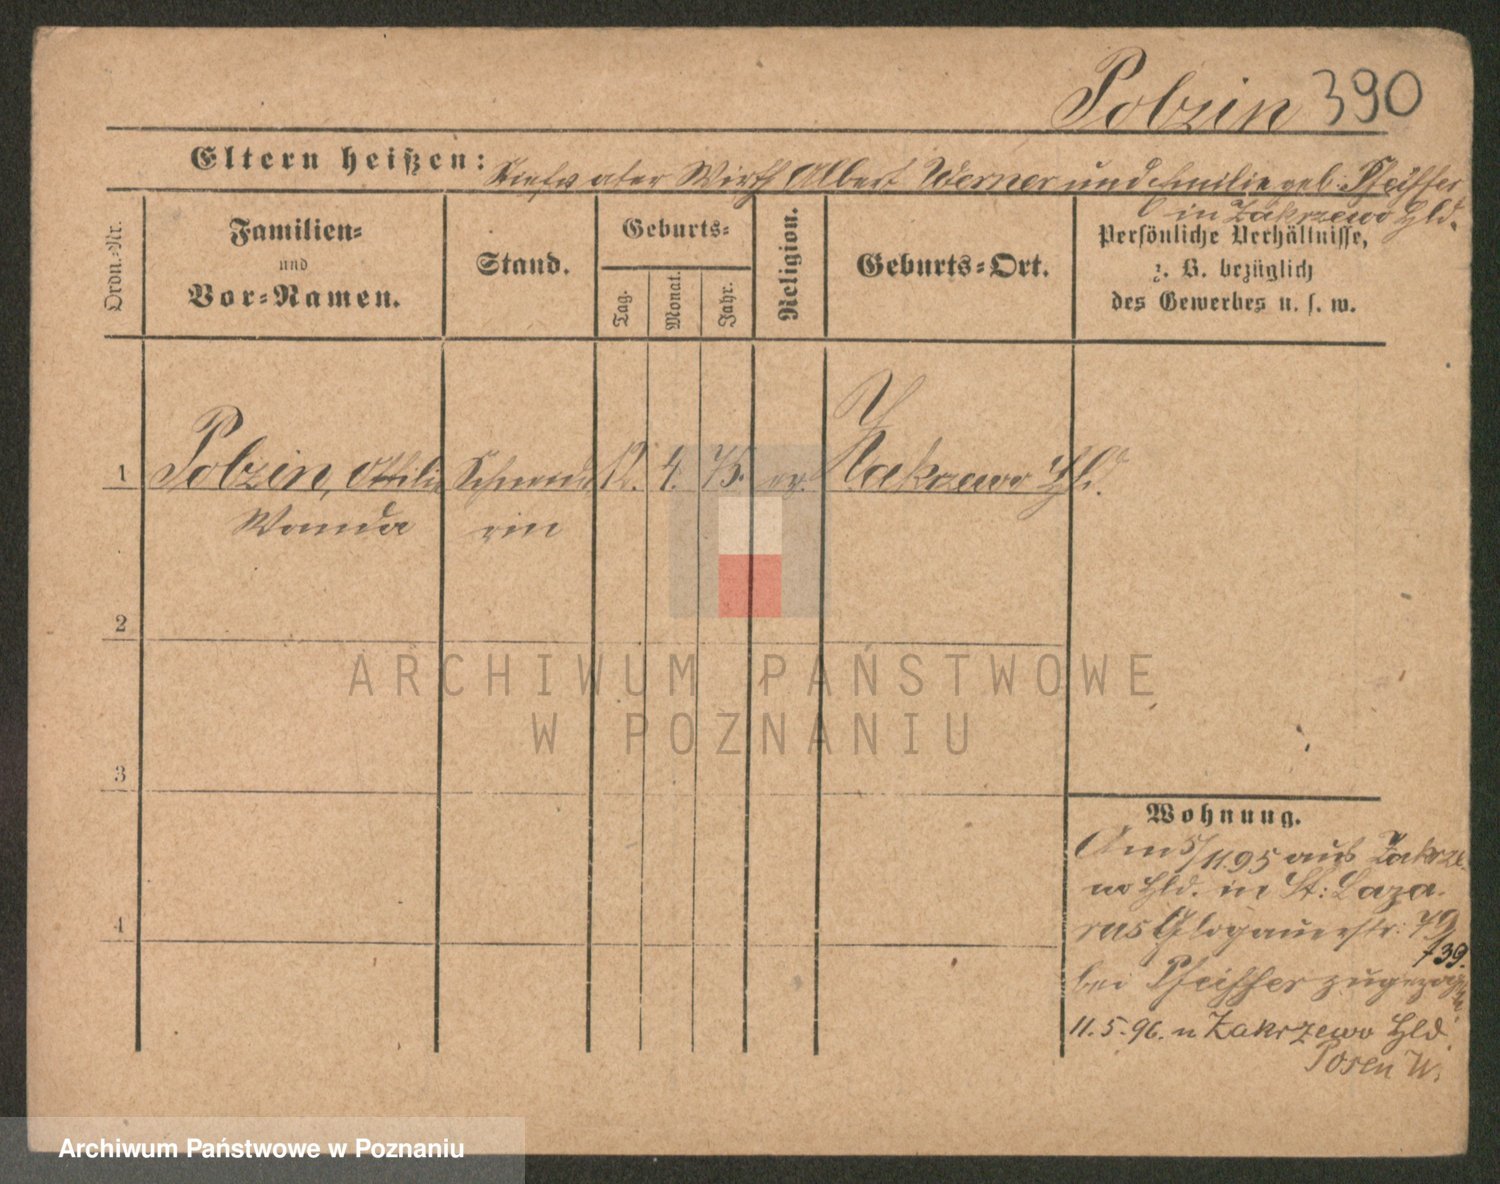 Pobzin 390
Eltern heißen: Stiefvater Wirth Albert Werner und Emilie geb. Pfeiffer
in Zakrzewo Hld.
Ordn.-Nr.
Familien-
und
Vor-Namen.
Stand.
Geburts-
Tag.
Monat.
Jahr.
Religion.
Geburts-Ort.
Persönliche Verhältnisse,
z. B. bezüglich
des Gewerbes u. s. w.
1 Pobzin, Ottilie Schneide 12. 4. 75. ev. Zakrzewo Hld.
Wanda rin
2
3
4
Wohnung.
Am 5/11.95 aus Zakrze
wo Hld. in St: Laza-
rus Glogauerstr: 79
/39.
bei Pfeiffer zugezogen
11.5.96. n Zakrzewo Hld.
Posen W.
ARCHIWUM PAŃSTWOWE
W POZNANIU
Archiwum Państwowe w Poznaniu